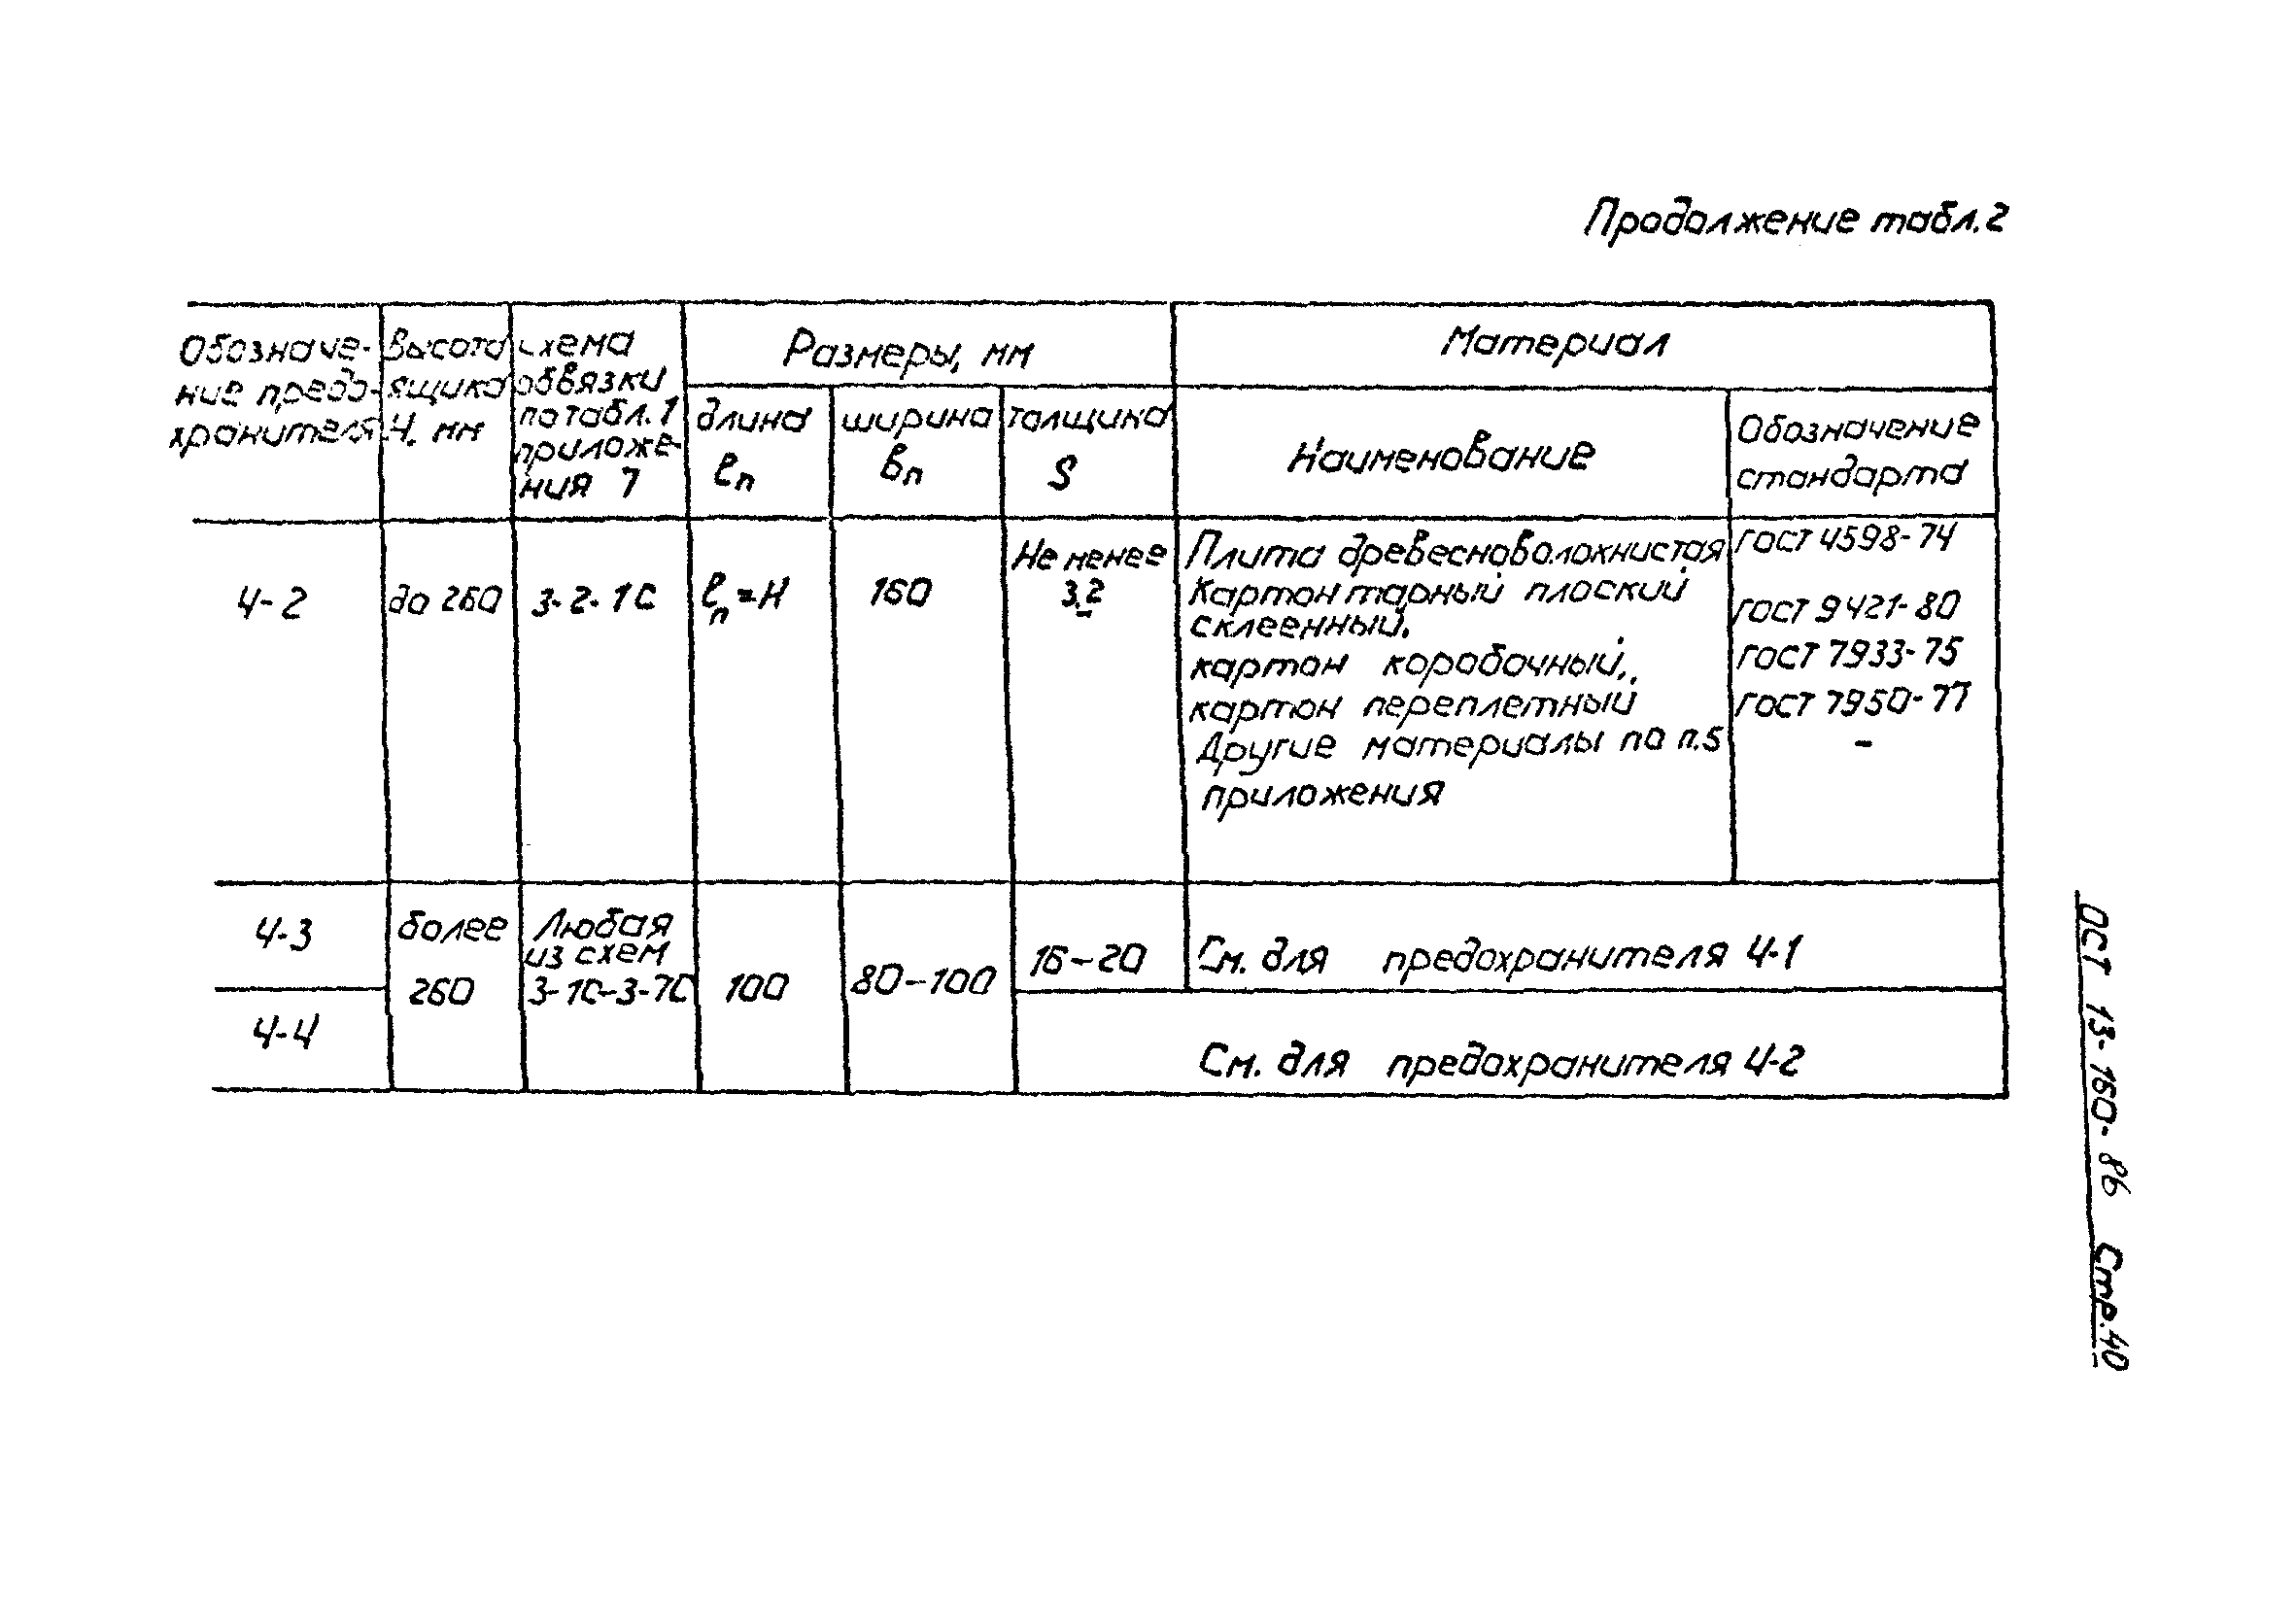 Продолжение табл.2
Обозначе-
ние предо-
хранителя
Высота
ящика
Н. мм
схема
обвязки
по табл.1
приложе-
ния 7
Размеры, мм
длина
ℓп
ширина
вп
толщина
S
Материал
Наименование
Обозначение
стандарта
4-2
до 260
3-2-1С
ℓп=Н
160
Не менее
3.2
Плита древесноволокнистая
Картон тарный плоский
склеенный.
картон коробочный,
картон переплетный
Другие материалы по п.5
приложения
ГОСТ 4598-74
ГОСТ 9421-80
ГОСТ 7933-75
ГОСТ 7950-77
-
4-3
более
260
Любая
из схем
3-1С-3-7С
100
80-100
16-20
См. для предохранителя 4-1
4-4
См. для предохранителя 4-2
ОСТ 13-160-86 Стр.40